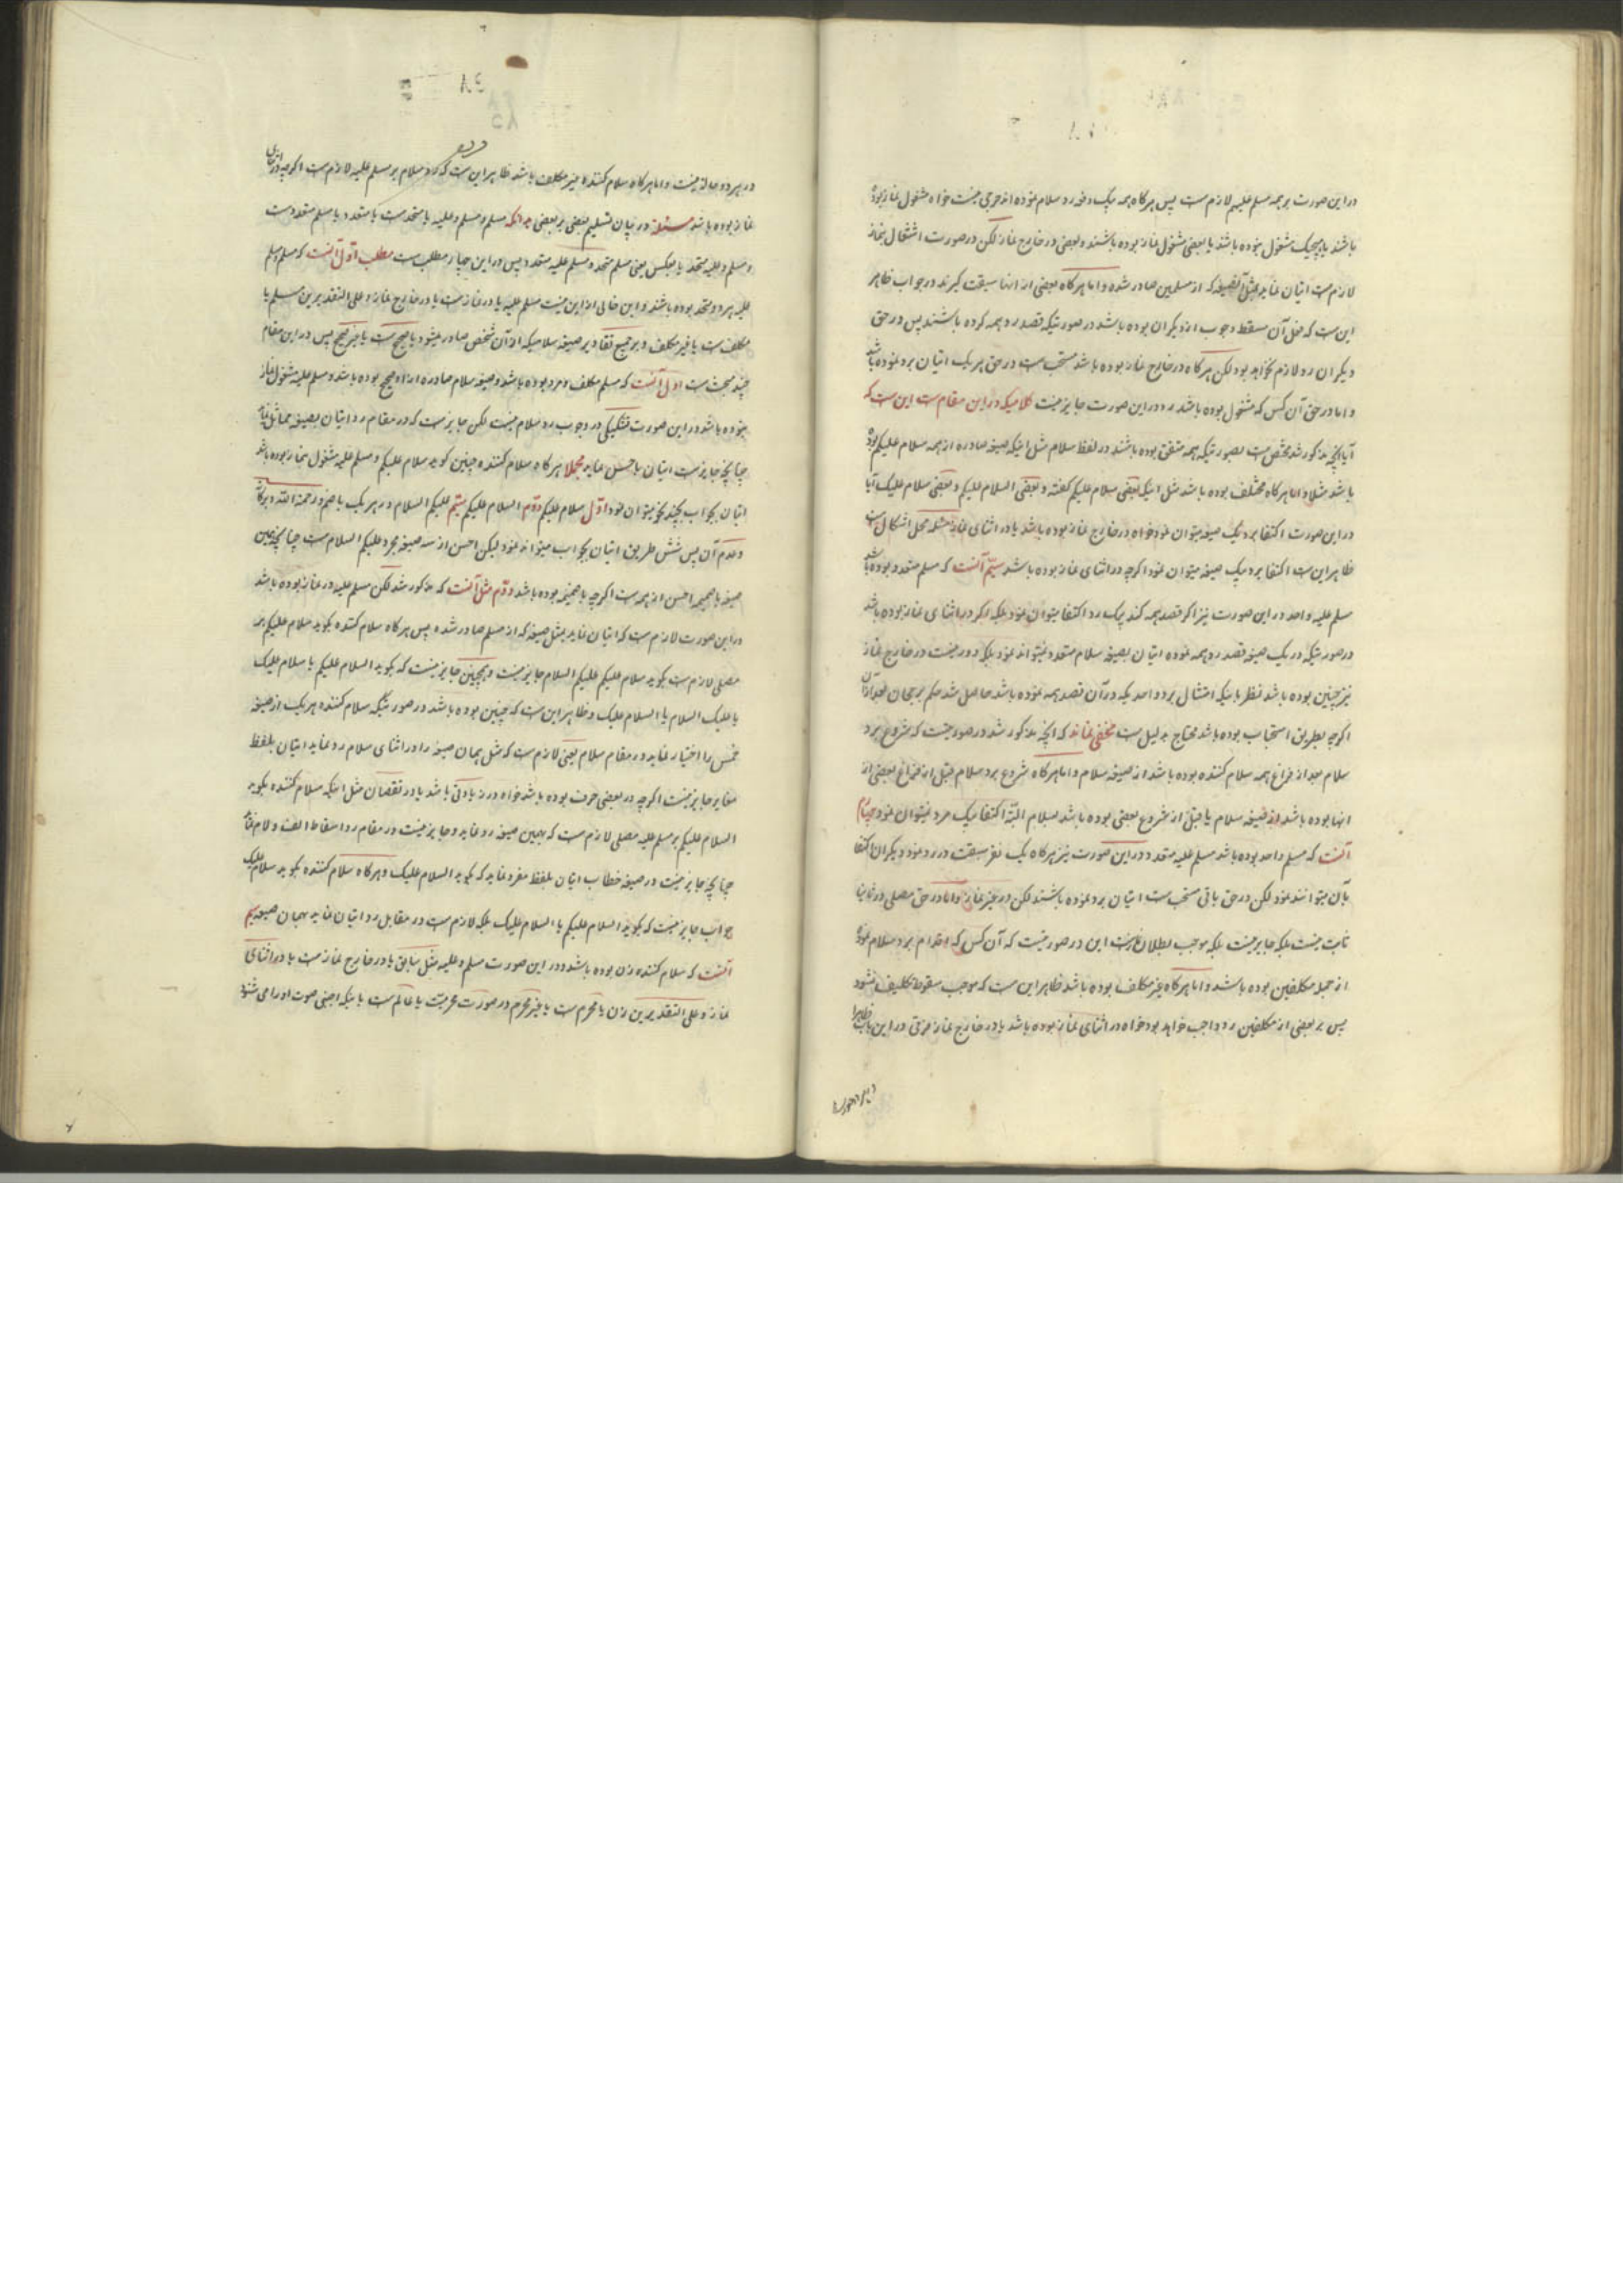 در این صورت بر همه مسلم علیهم لازم است پس هرگاه همه بیک دفعه رد سلام نموده اند حرجی نیست خواه مشغول نماز بوده
باشند یا هیچیک مشغول نبوده باشند یا بعضی مشغول نماز بوده باشند و بعضی در خارج نماز لکن در صورت اشتغال بنماز
لازمست اتیان نماید بمثل آنصیغه که از مسلمین صادر شده و اما هرگاه بعضی از انها سبقت گیرند در جواب ظاهر
این ست که فعل آن مسقط وجوب از دیگران بوده باشد در صورتیکه قصد رد همه کرده باشند پس در حق
دیگران رد لازم نخواهد بود لکن هرگاه در خارج نماز بوده باشد مستحب ست در حق هر یک اتیان برد نموده باشد
و اما در حق آن کس که مشغول بوده باشد رد در این صورت جایز نیست کلامیکه در این مقام ست این ست که
آیا آنچه مذکور شد مختص ست بصورتیکه همه متفق بوده باشند در لفظ سلام مثل اینکه صیغه صادره از همه سلام علیکم بوده
باشد مثلا و اما هرگاه مختلف بوده باشد مثل اینکه بعضی سلام علیکم گفته و بعضی السلام علیکم و بعضی سلام علیک آیا
در این صورت اکتفا برد یک صیغه میتوان نمود خواه در خارج نماز بوده باشد یا در اثنای نماز مسئله محل اشکال ست
ظاهر این ست اکتفا برد یک صیغه میتوان نمود اگرچه در اثنای نماز بوده باشد سیّم آنست که مسلم متعدد بوده باشد
مسلم علیه واحد در این صورت نیز اگر قصد همه کند بیک رد اکتفا میتوان نمود بلکه اگر در اثنای نماز بوده باشد
در صورتیکه در یک صیغه قصد رد همه نموده اتیان بصیغه سلام متعدد نمیتواند نمود بلکه دور نیست در خارج نماز
نیز چنین بوده باشد نظر باینکه امتثال برد واحد یکه در آن قصد همه نموده باشد حاصل شد حکم برجحان بعد از آن
اگرچه بطریق استحباب بوده باشد محتاج بدلیل ست مخفی نماند که آنچه مذکور شد در صورتیست که شروع برد
سلام بعد از فراغ همه سلام کننده بوده باشد از صیغه سلام و اما هرگاه شروع برد سلام قبل از فراغ بعضی از
انها بوده باشد از صیغه سلام یا قبل از شروع بعضی بوده باشد بسلام البتّه اکتفا بیک رد نمیتوان نمود چهارم
آنست که مسلم واحد بوده باشد مسلم علیه متعدد در این صورت نیز هرگاه یک نفر سبقت در رد نمود دیگران اکتفا
بآن میتوانند نمود لکن در حق باقی مستحب ست اتیان برد نموده باشند لکن در غیر نماز و اما در حق مصلی در ثانیا
ثابت نیست بلکه جایز نیست بلکه موجب بطلان نماز ست این در صورتیست که آن کس که اقدام برد سلام نموده
از جمله مکلفین بوده باشد و اما هرگاه غیر مکلف بوده باشد ظاهر این ست که موجب سقوط تکلیف نشود
پس بر بعضی از مکلفین رد واجب خواهد بود خواه در اثنای نماز بوده باشد یا در خارج نماز فرقی در این باب
در هر دو حالة نیست و اما هرگاه سلام کننده غیر مکلف باشد ظاهر این ست که رد سلام بر مسلم علیه لازم ست اگرچه در اثنای
نماز بوده باشد مسئلة در بیان تسلیم بعضی بر بعضی بدانکه مسلم و مسلم علیه یا متحد ست یا متعدد یا مسلم متعدد ست
و مسلم علیه متحد یا بعکس یعنی مسلم متحد و مسلم علیه متعدد پس در این چهار مطلب ست مطلب اوّل آنست که مسلم و مسلم
علیه هر دو متحد بوده باشند و این خالی از این نیست مسلم علیه یا در نماز ست یا در خارج نماز و علی التقدیرین مسلم یا
مکلف ست یا غیر مکلف و بر جمیع تقادیر صیغه سلامیکه از آن شخص صادر میشود یا صحیح ست یا غیر صحیح پس در این مقام
چند مبحث ست اول آنست که مسلم مکلف و مرد بوده باشد و صیغه سلام صادره از او صحیح بوده باشد و مسلم علیه مشغول نماز
نبوده باشد در این صورت تشکیکی در وجوب رد سلام نیست لکن جایز ست که در مقام رد اتیان بصیغه مماثل نماید
چنانچه جایز ست اتیان باحسن نماید مجملا هرگاه سلام کننده چنین گوید سلام علیکم و مسلم علیه مشغول نماز نبوده باشد
اتیان بجواب بچند نحو میتوان نمود اوّل سلام علیکم دوّم السلام علیکم سیّم علیکم السلام و در هر یک با ضم و رحمة الله و برکاته
و عدم آن پس شش طریق اتیان بجواب میتواند نمود لیکن احسن از سه صیغه مجرد علیکم السلام ست چنانچه همین
صیغه با ضمیمه احسن از همه ست اگرچه با ضمیمه بوده باشد دوّم مثل آنست که مذکور شد لکن مسلم علیه در نماز بوده باشد
در این صورت لازم ست که اتیان نماید بمثل صیغه که از مسلم صادر شده پس هرگاه سلام کننده بگوید سلام علیکم بر
مصلی لازم ست بگوید سلام علیکم علیکم السلام جایز نیست و همچنین جایز نیست که بگوید السلام علیکم یا سلام علیک
یا علیک السلام یا السلام علیک و ظاهر این ست که چنین بوده باشد در صورتیکه سلام کننده هر یک از صیغه
خمس را اختیار نماید در مقام سلام یعنی لازم ست که مثل همان صیغه را در اثنای سلام رد نماید اتیان بلفظ
مغایر جایز نیست اگرچه در بعضی حرف بوده باشد خواه در زیادتی باشد یا در نقصان مثل اینکه سلام کننده بگوید
السلام علیکم بر مسلم علیه مصلی لازم ست که بهمین صیغه رد نماید و جایز نیست در مقام رد اسقاط الف و لام نماید
چنانچه جایز نیست در صیغه خطاب اتیان بلفظ مفرد نماید که بگوید السلام علیک و هرگاه سلام کننده بگوید سلام علیک
جواب جایز نیست که بگوید السلام علیکم یا السلام علیک بلکه لازم ست در مقابل رد اتیان نماید بهمان صیغه سیم
آنست که سلام کننده زن بوده باشد و در این صورت مسلم علیه مثل سابق یا در خارج نماز ست یا در اثنای
نماز و علی التقدیرین زن یا محرم ست یا غیر محرم در صورت محرمیّت یا عالم ست باینکه اجنبی صوت او را می شنود